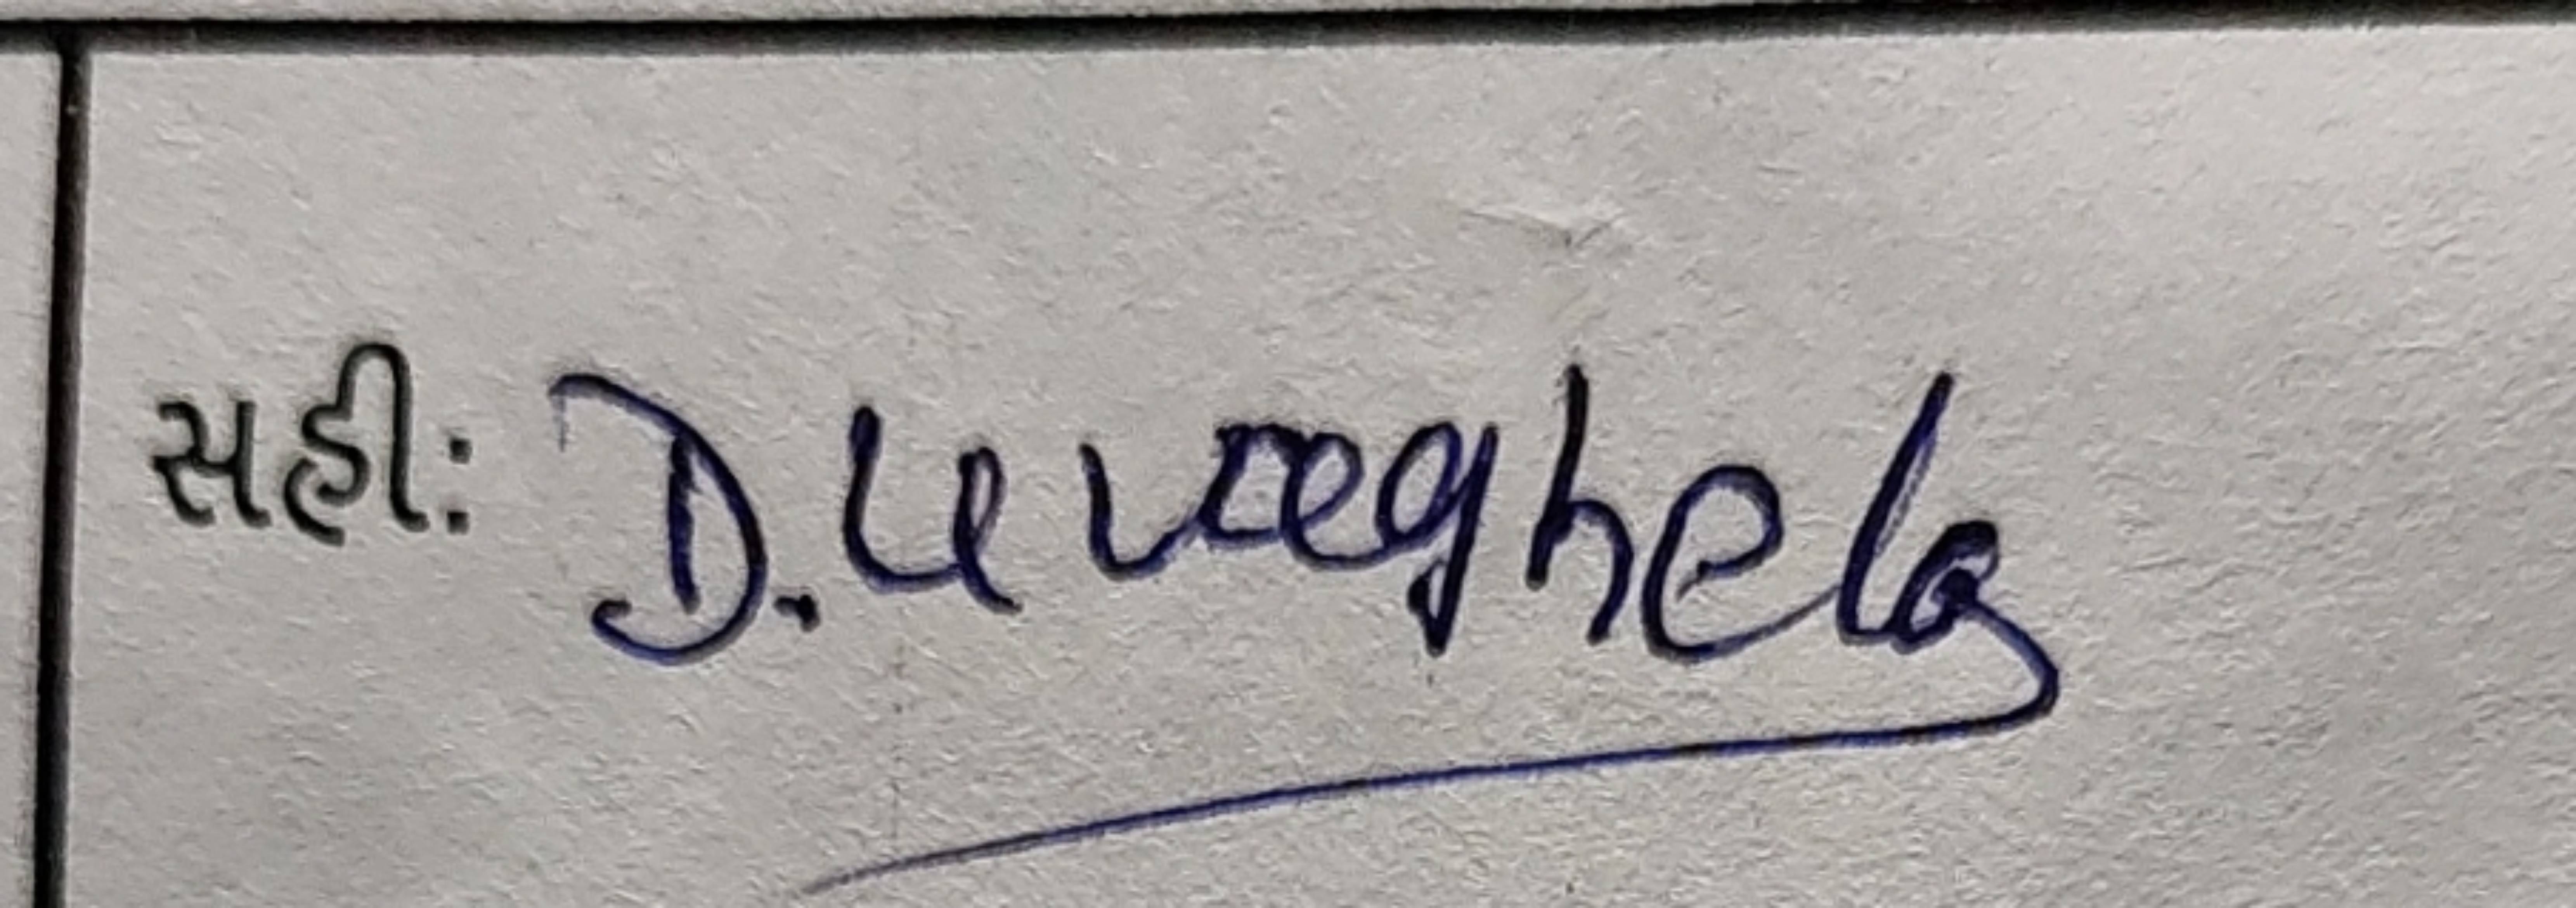 સહી: D.U vaghela